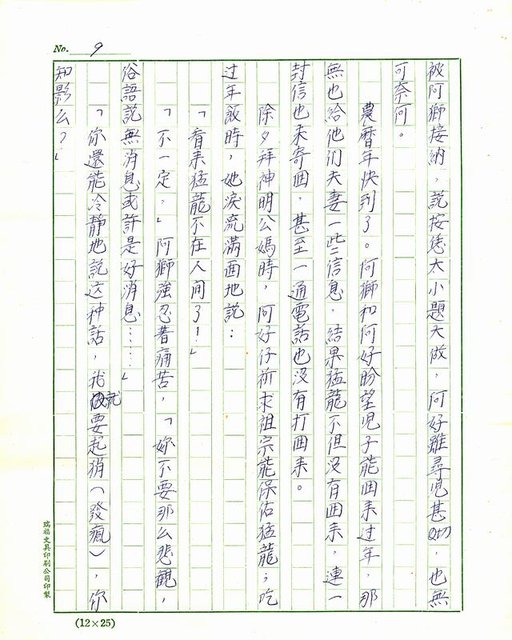 No. 9
被阿獅接納，說按怎大小題大做，阿好雖尋児甚切，也無
可奈何。
農曆年快到了。阿獅和阿好盼望児子能回来过年，那
無也給他们夫妻一些信息，結果猛龍不但没有回来，連一
封信也未寄回，甚至一通電話也没有打回来。
除夕拜神明公媽時，阿好仔祈求祖宗能保佑猛龍；吃
过年飯時，她淚流滿面地說：
「看来猛龍不在人间了！」
「不一定，」阿獅強忍着痛苦，「妳不要那么悲觀，
俗語説無消息或許是好消息……」
「你還能冷静地説这种話，我就要起痟（發瘋），你
知影么？」
瑞福文具印刷公司印製
(12×25)